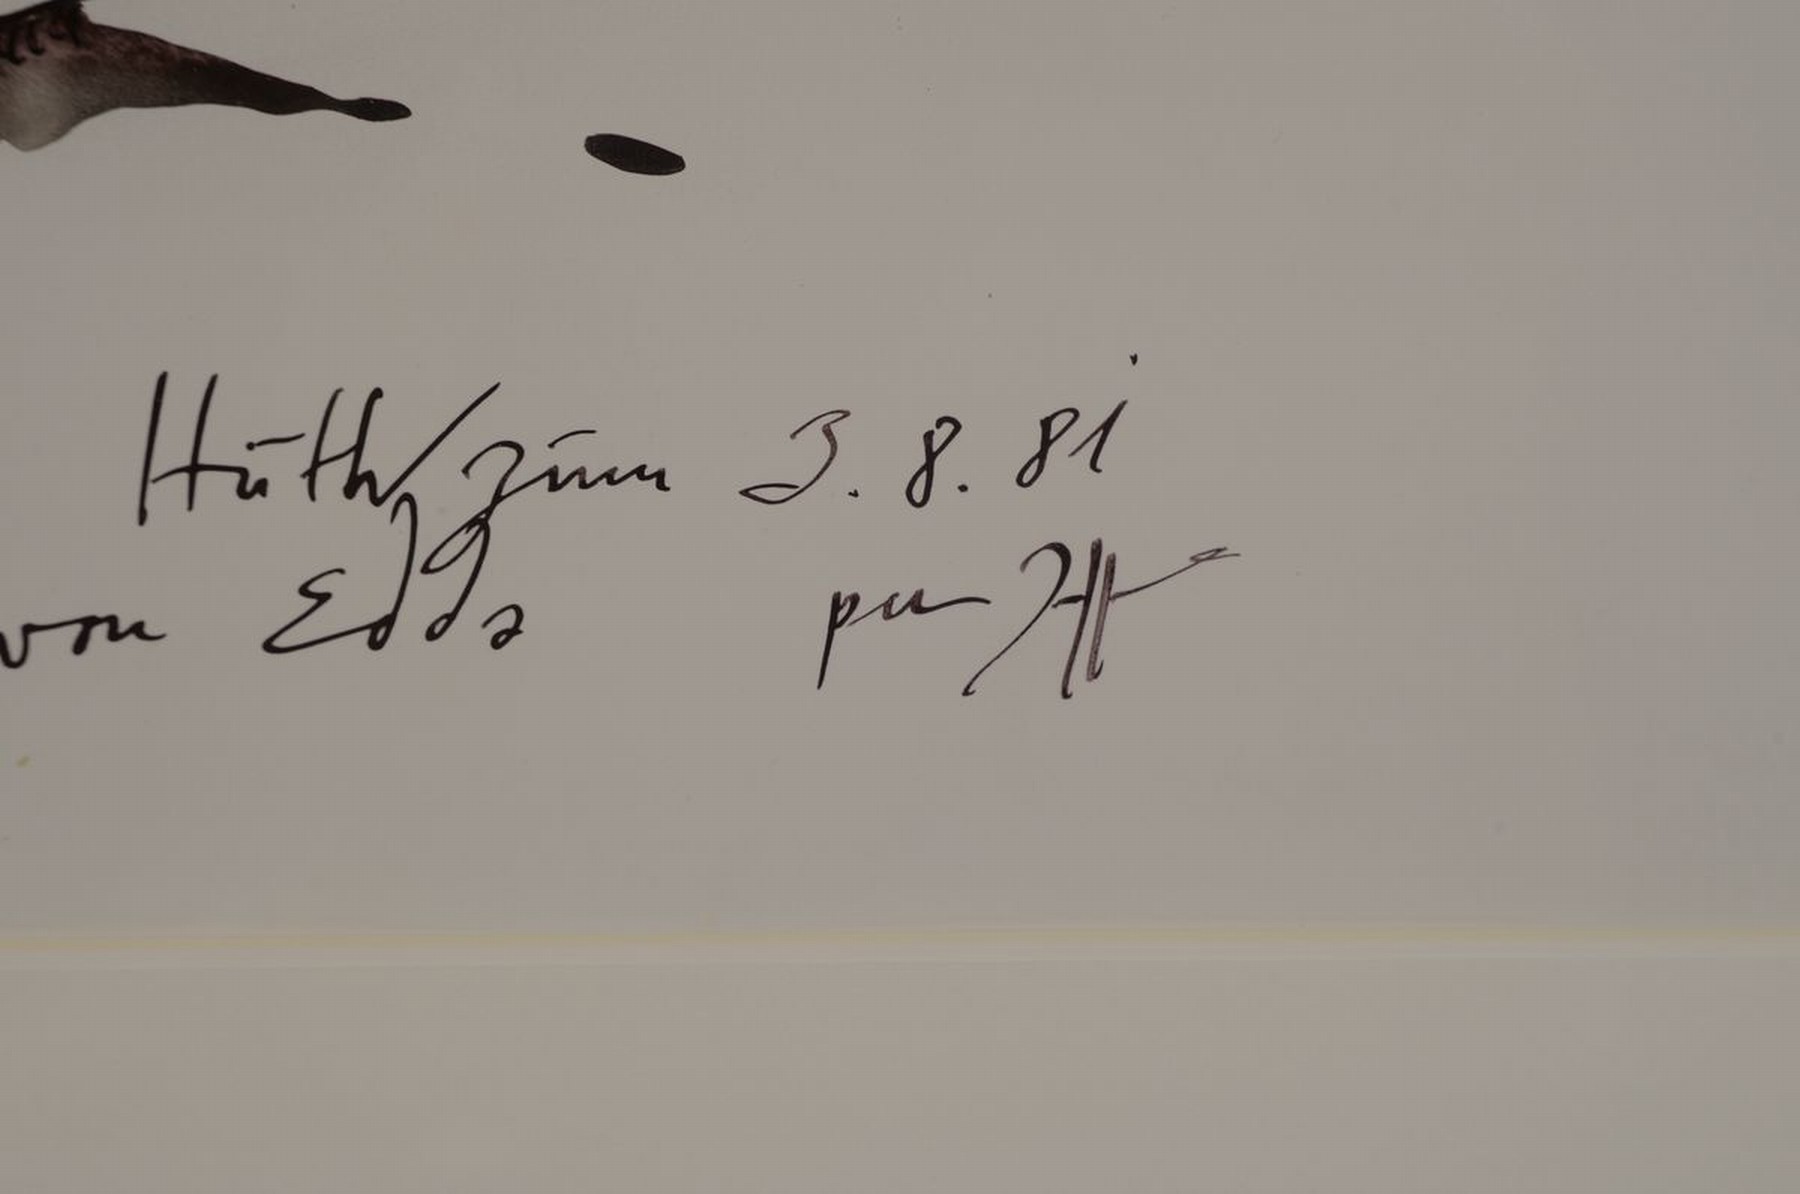 Hüth zum 3. 8. 81
von Edda per